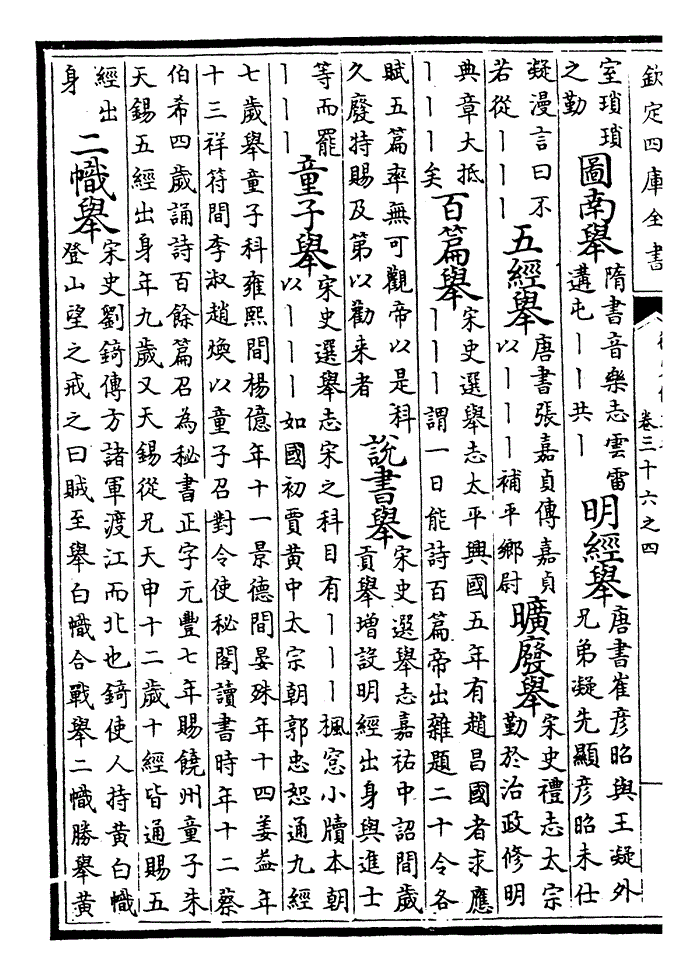 欽定四庫全書
卷三十六之四
室瑣瑣
之勤
圖南舉
隋書音樂志雲雷
遘屯丨丨共丨
明經舉
唐書崔彥昭與王凝外
兄弟凝先顯彥昭未仕
凝漫言曰不
若從丨丨丨
五經舉
唐書張嘉貞傳嘉貞
以丨丨丨補平鄉尉
曠廢舉
宋史禮志太宗
勤於治政修明
典章大抵
丨丨丨矣
百篇舉
宋史選舉志太平興國五年有趙昌國者求應
丨丨丨謂一日能詩百篇帝出雜題二十令各
賦五篇率無可觀帝以是科
久廢特賜及第以勸来者
說書舉
宋史選舉志嘉祐中詔間歲
貢舉增設明經出身與進士
等而罷
丨丨丨
童子舉
宋史選舉志宋之科目有丨丨丨楓窓小牘本朝
以丨丨丨如國初賈黃中太宗朝郭忠恕通九經
七歲舉童子科雍熙間楊億年十一景德間晏殊年十四姜益年
十三祥符間李叔趙煥以童子召對令使秘閣讀書時年十二蔡
伯希四歲誦詩百餘篇召為秘書正字元豐七年賜饒州童子朱
天錫五經出身年九歲又天錫從兄天申十二歲十經皆通賜五
經出
身
二幟舉
宋史劉錡傳方諸軍渡江而北也錡使人持黃白幟
登山望之戒之曰賊至舉白幟合戰舉二幟勝舉黃